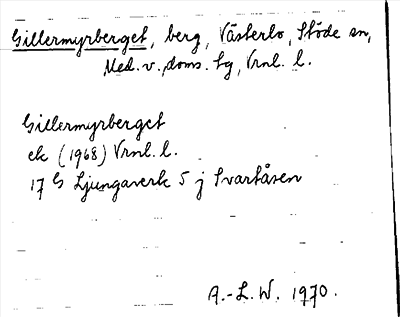 Gillermyrberget, berg, Västerlo, Stöde sn,
Med. v. doms. tg, Vrnl. l.
Gillermyrberget
ek (1968) Vrnl. l.
17 G Ljungaverk 5 j Svartåsen
A.-L. W. 1970.